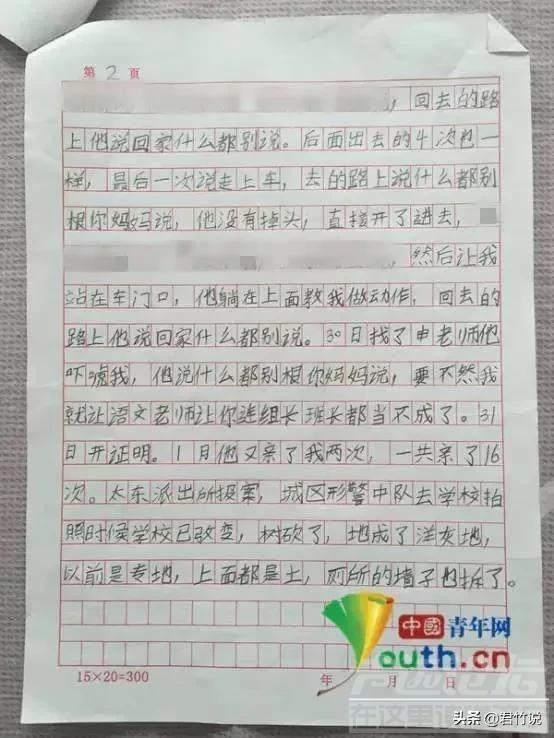 第 2 页
，回去的路
上他说回家什么都别说。后面出去的4次也一
样，最后一次说走上车，去的路上说什么都别
根你妈妈说，他没有掉头，直接开了进去，
，然后让我
站在车门口，他躺在上面教我做动作，回去的
路上他说回家什么都别说。30日找了申老师他
吓唬我，他说什么都别根你妈妈说，要不然我
就让语文老师让你连组长班长都当不成了。31
日开证明。1月他又亲了我两次，一共亲了16
次。太东派出所报案，城区形警中队去学校拍
照时候学校已改变，树砍了，地成了洋灰地，
以前是专地，上面都是土，厕所的墙子也拆了。
中國青年网
Youth.cn
15×20=300 年 月 日
在这里
头条 @君竹说